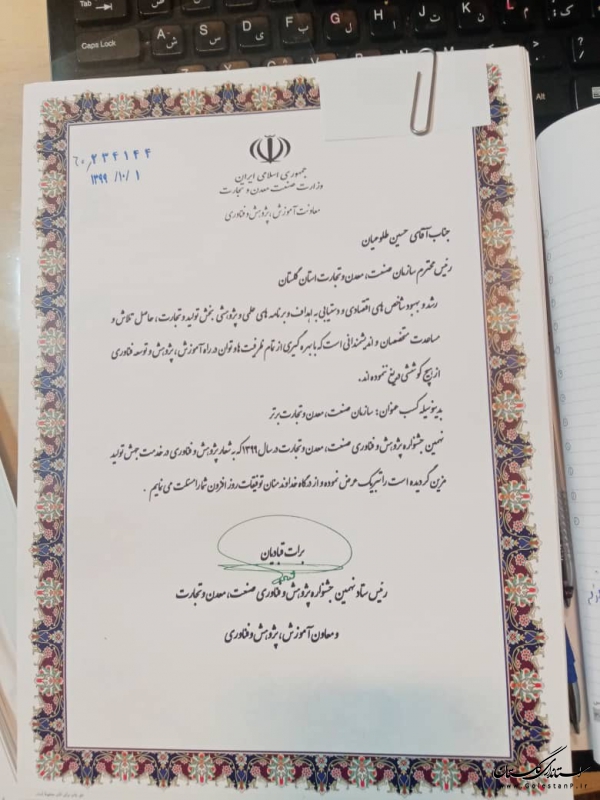 Tab
Caps Lock
A
ش
S
س
D
ی
F
ب
G
ل
H
ا
J
ت
K
ن
L
م
Alt
۶۰/۲۳۴۱۴۴
۱۳۹۹/۱۰/۱
جمهوری اسلامی ایران
وزارت صنعت، معدن و تجارت
معاونت آموزش، پژوهش و فناوری
جناب آقای حسین طلوعیان
رئیس محترم سازمان صنعت، معدن و تجارت استان گلستان
رشد و بهبود شاخص های اقتصادی و دستیابی به اهداف و برنامه های علمی و پژوهشی بخش تولید و تجارت، حاصل تلاش و
مساعدت متخصصان و اندیشمندانی است که با بهره گیری از تمام ظرفیت ها و توان در راه آموزش، پژوهش و توسعه فناوری
از هیچ کوششی دریغ ننموده اند.
بدینوسیله کسب عنوان: سازمان صنعت، معدن و تجارت برتر
نهمین جشنواره پژوهش و فناوری صنعت، معدن و تجارت در سال ۱۳۹۹ که به شعار پژوهش و فناوری در خدمت جهش تولید
مزین گردیده است را تبریک عرض نموده و از درگاه خداوند منان توفیقات روز افزون شما را مسئلت می نمایم.
برات قبادیان
رئیس ستاد نهمین جشنواره پژوهش و فناوری صنعت، معدن و تجارت
و معاون آموزش، پژوهش و فناوری
استانداری گلستان
www.GolestanP.ir